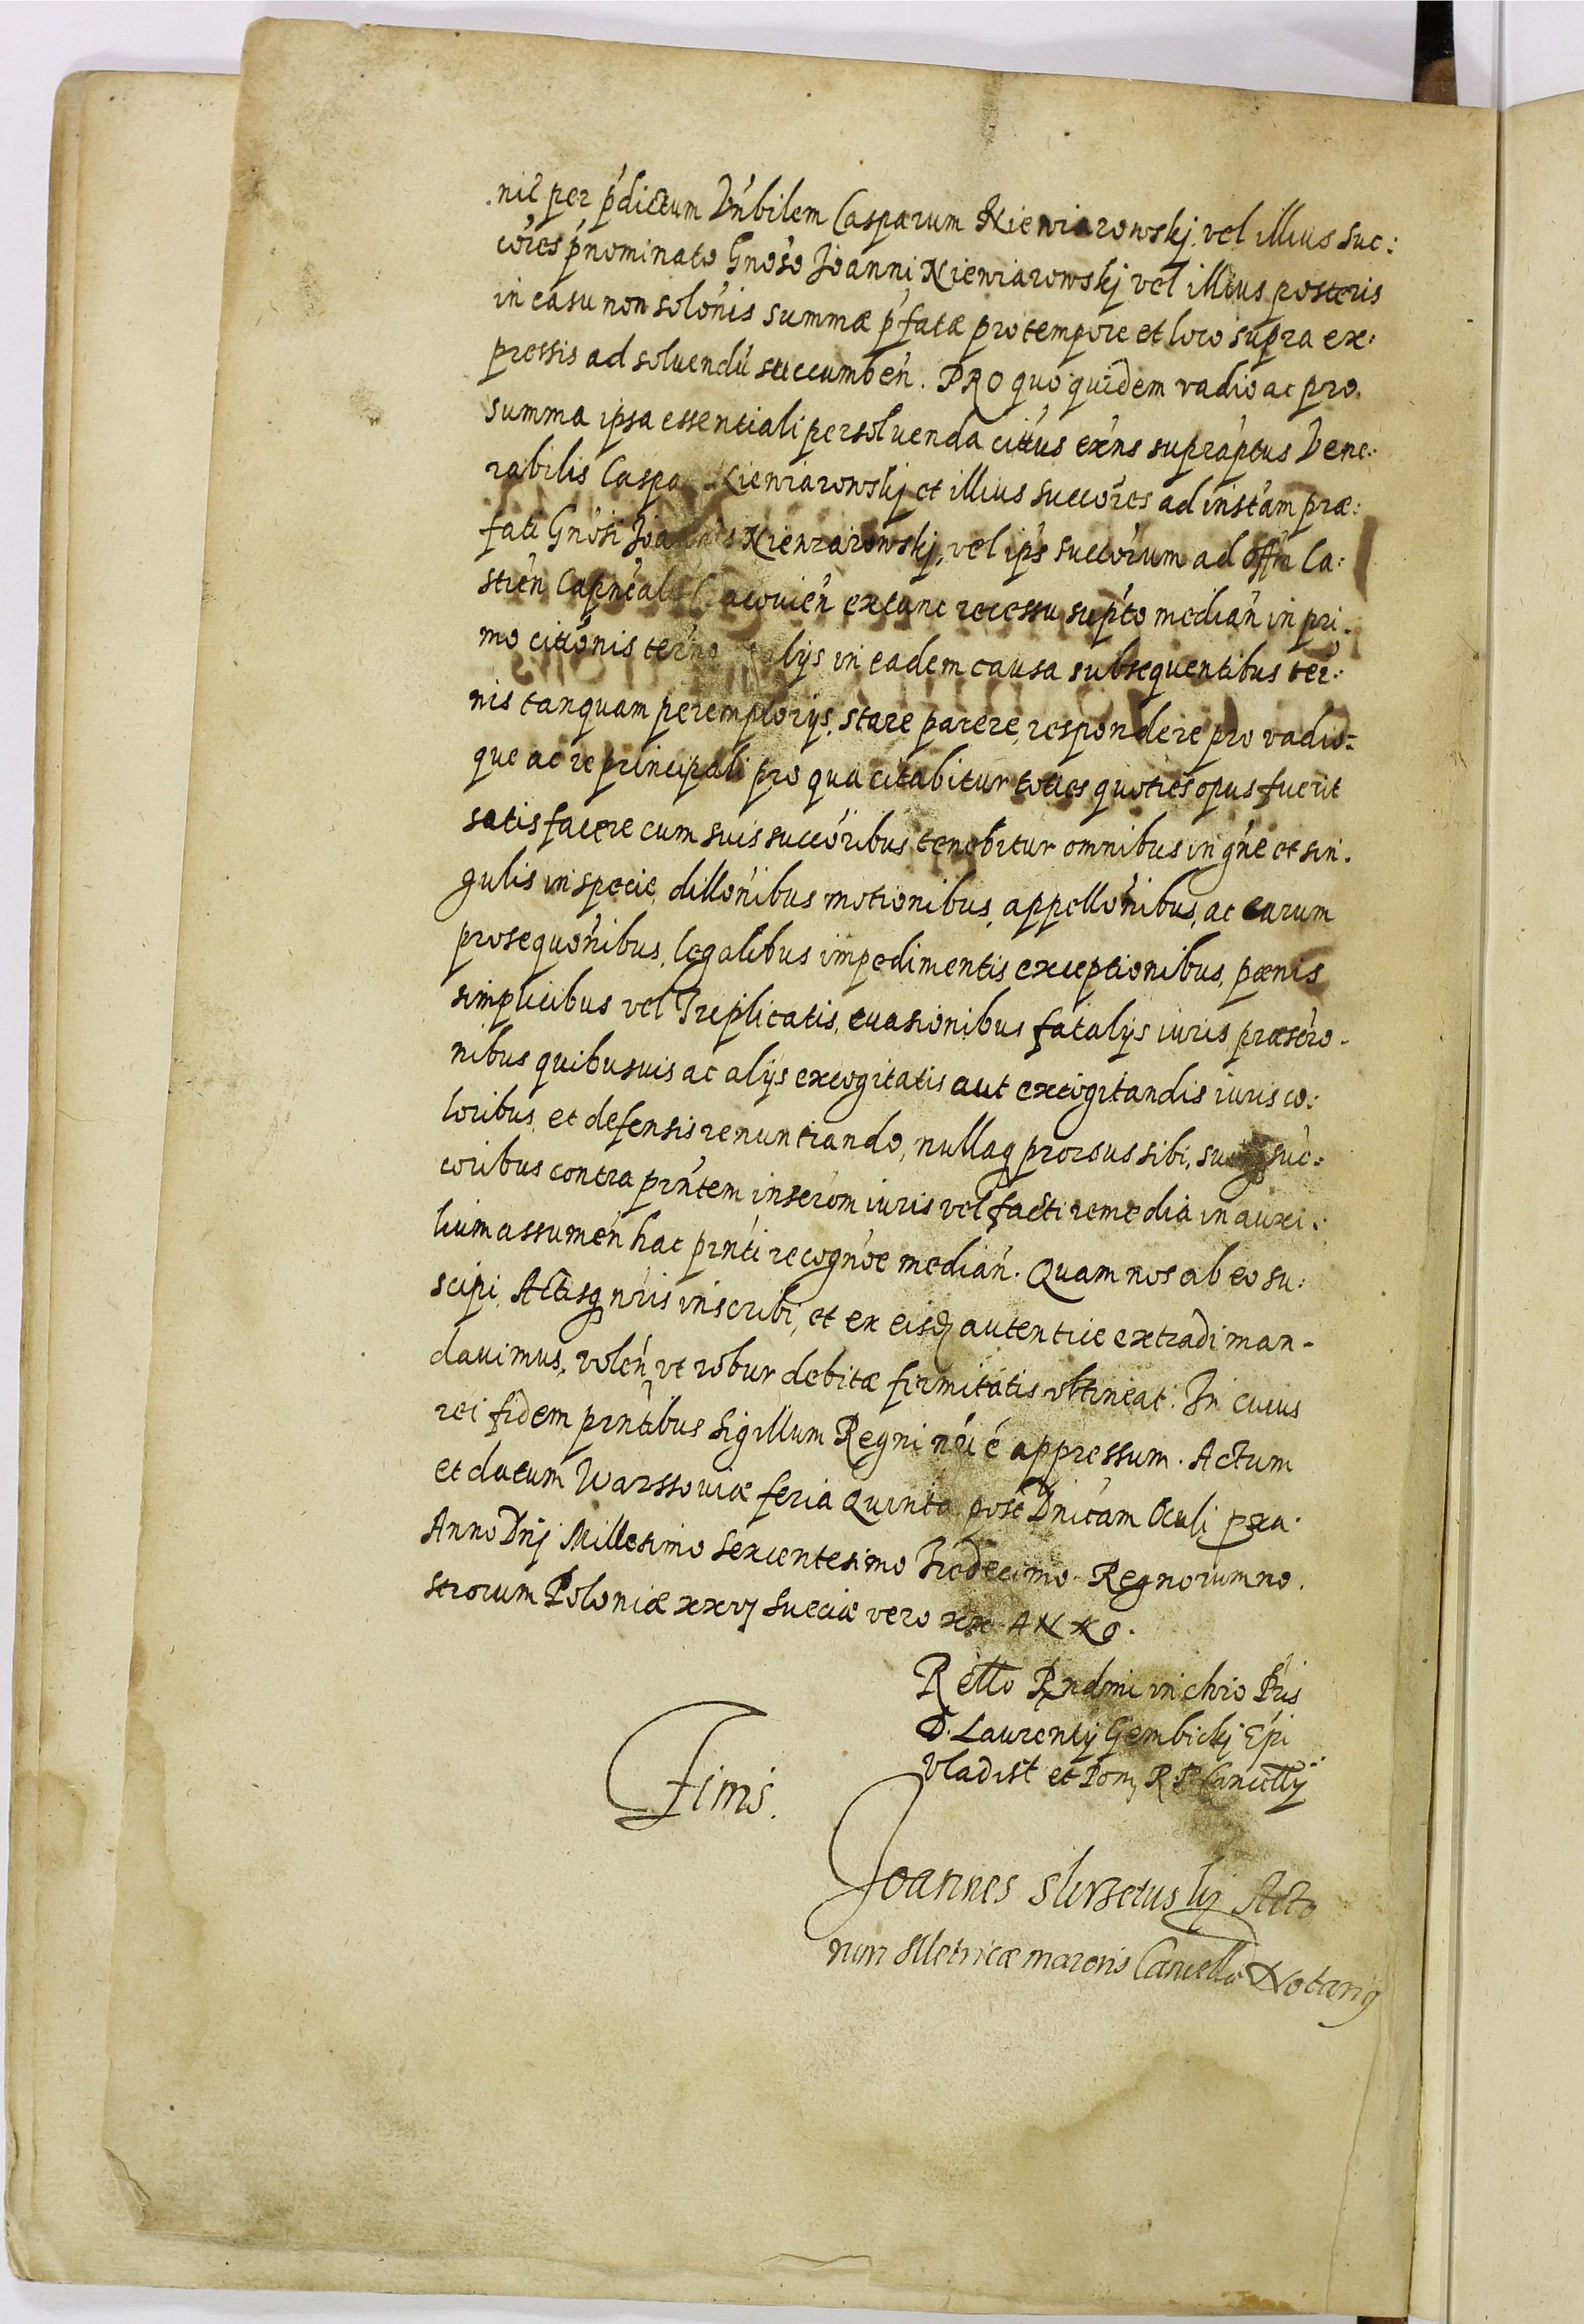 nil per p̕dictum Vn̕bilem Casparum Niewiarowskj, vel illius suc:
co̕res p̕nominato Gnoso Joanni Niewiarowskj vel illius posteris
in casu non solo̕nis summæ p̕fatæ pro tempore et loco supra ex:
pressis ad soluendu̕ succumben̕. PRO quo quidem vadio ac pro
summa ipsa essentiali persoluenda citus exn̕s supraptus Vene:
rabilis Caspar Niewiarowskj et illius succo̕res ad insta̕m præ:
fati Gnosi Joannis Niewiarowskj, vel ip̕s succo̕rum ad offm̕ Ca:
strén Capnéalé Cracouién extunc recessu sup̕to median̕ in pri.
mo citio̕nis ter̕no alijs in eadem causa subsequentibus ter̕:
nis tanquam peremptorijs, stare parere, respondere pro vadio:
que ac re principali pro qua citabitur toties quoties opus fuerit
satisfacere cum suis succo̕ribus tenebitur omnibus in gn̕e et sin.
gulis in specie, dillo̕nibus motionibus, appello̕nibus, ac earum
prosequo̕nibus, legalibus impedimentis exceptionibus, pœnis
simplicibus vel Triplicatis, euasionibus fatalijs iuris præscro.
nibus quibusuis ac alijs excogitatis aut excogitandis iuris co:
loribus, et defensis renuntiando, nullaq prorsus sibi, suisq suc:
coribus contra prn̕tem inscro̕m iuris vel facti remedia in auxi.
lium assumen̕ hac prn̕ti recogno̕e median̕. Quam nos ab eo su:
scipi, Actisq nr̕is inscribi, et ex eisdȝ autentice extradi man-
dauimus, volen̕, vt robur debitæ firmitatis obtineat. In cuius
rei fidem prn̕tibus Sigillum Regni nr̕i é appressum. Actum
et datum Warssouiæ feria Quinta post Dnica̕m Oculi pxa.
Anno Dnj Millesimo Sexcentesimo Tredecimo. Regnorum no.
strorum Poloniæ xxvj Sueciæ vero xx. ANNO.
R ello Rndmi in chr̕o Pr̕is
D. Laurentij Gembickj Ep̕i
Vladisl et Pom, R. P. Cancellij
Finis.
Joannes Acto
rum Metricæ maioris Cancellæ Notariꝰ